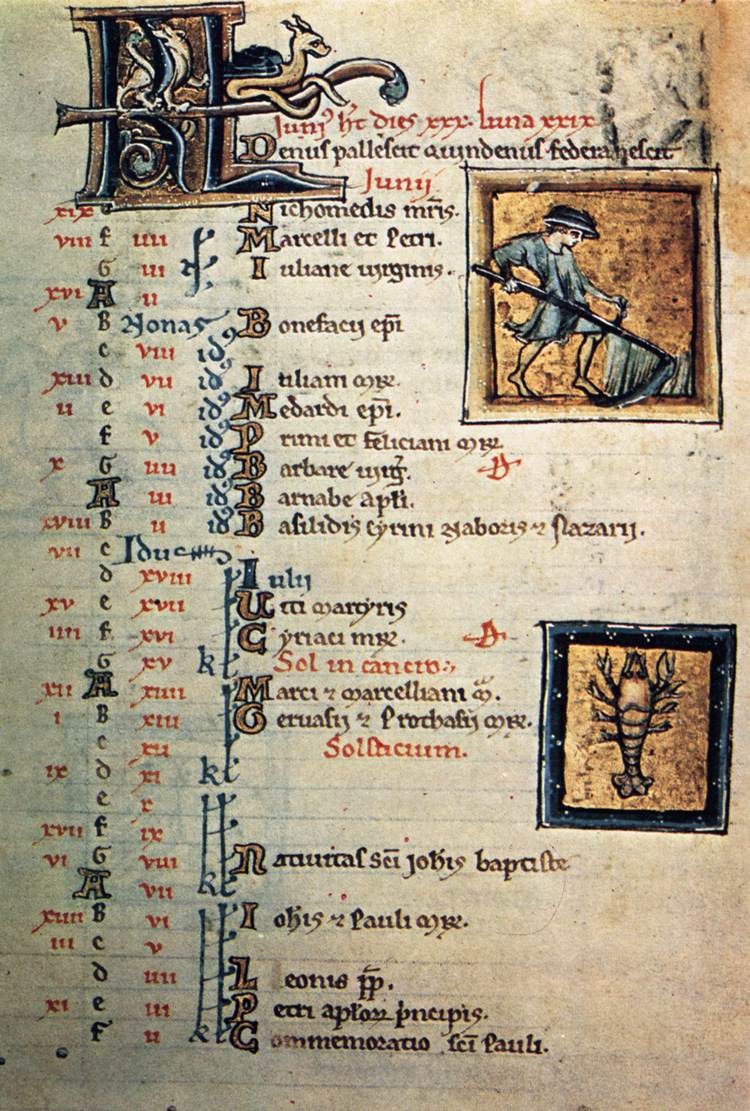 KL
Iuni⁹ ht dies xxx. luna xxix
Denus pallescit quindenus federa nescit
Iunii
xix e Nichomedis mris.
viii f iiii Marcelli et Petri.
G iii Iuliane uirginis.
xvi A ii
v B Nonas Bonefacii epi
c viii id⁹
xiii d vii id⁹ Iuliani mr.
ii e vi id⁹ Medardi epi.
f v id⁹ Primi et feliciani mr.
x G iiii id⁹ Barbare uirg. D
A iii id⁹ Barnabe apli.
xviii B ii id⁹ Basilidis cyrini naboris ⁊ Nazarii.
vii c Idus
d xviii kl Iulii
xv e xvii Uiti martyris
iiii f xvi Cyriaci mr. D
G xv kl Sol in cancro
xii A xiiii Marci ⁊ marcelliani m.
i B xiii Geruasii ⁊ Prothasii mr.
c xii Solsticium.
ix d xi kl
e x
xvii f ix
vi G viii Natiuitas sci johis baptiste
A vii kl
xiiii B vi Iohis ⁊ Pauli mr.
iii c v
d iiii Leonis pp.
xi e iii Petri aplor principis.
f ii kl Commemoratio sci Pauli.